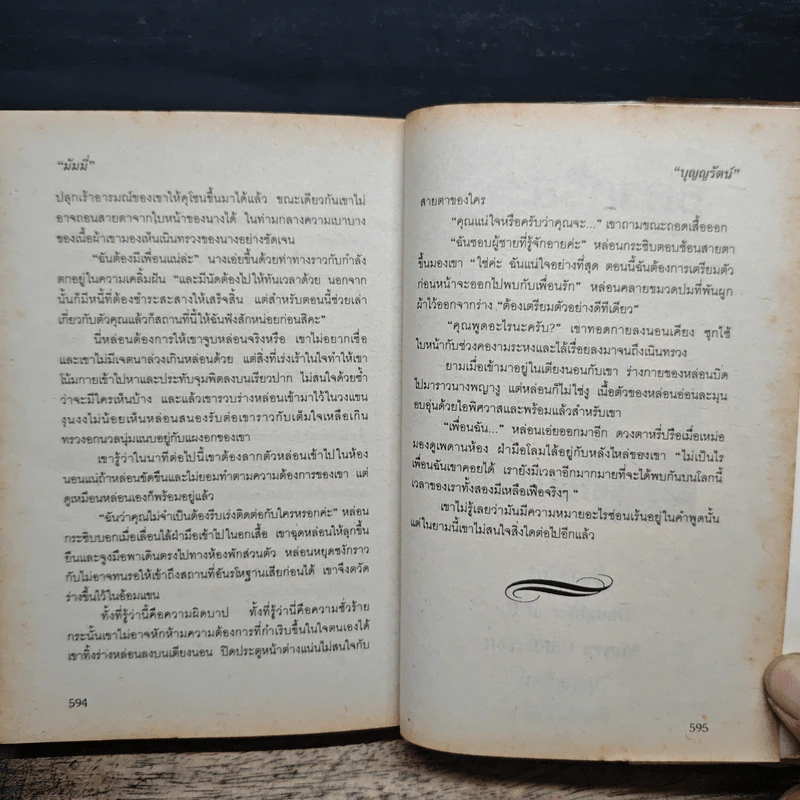 “มัมมี่”
ปลุกเร้าอารมณ์ของเขาให้คุโชนขึ้นมาได้แล้ว ขณะเดียวกันเขาไม่
อาจถอนสายตาจากใบหน้าของนางได้ ในท่ามกลางความเบาบาง
ของเนื้อผ้าเขามองเห็นเนินทรวงของนางอย่างชัดเจน
“ฉันต้องมีเพื่อนแน่ล่ะ” นางเอ่ยขึ้นด้วยท่าทางราวกับกำลัง
ตกอยู่ในความเคลิ้มฝัน “และมีนัดต้องไปให้ทันเวลาด้วย นอกจาก
นั้นก็มีหนี้ที่ต้องชำระสะสางให้เสร็จสิ้น แต่สำหรับตอนนี้ช่วยเล่า
เกี่ยวกับตัวคุณแล้วก็สถานที่นี้ให้ฉันฟังสักหน่อยก่อนสิคะ”
นี่หล่อนต้องการให้เขาจูบหล่อนจริงหรือ เขาไม่อยากเชื่อ
และเขาไม่มีเจตนาล่วงเกินหล่อนด้วย แต่สิ่งที่เร่งเร้าในใจทำให้เขา
โน้มกายเข้าไปหาและประทับจุมพิตลงบนเรียวปาก ไม่สนใจด้วยซ้ำ
ว่าจะมีใครเห็นบ้าง และแล้วเขารวบร่างหล่อนเข้ามาไว้ในวงแขน
งุนงงไม่น้อยเห็นหล่อนสนองรับต่อเขาราวกับเต็มใจเหลือเกิน
ทรวงอกนวลนุ่มแนบอยู่กับแผงอกของเขา
เขารู้ว่าในนาทีต่อไปนี้เขาต้องลากตัวหล่อนเข้าไปในห้อง
นอนแน่ถ้าหล่อนขัดขืนและไม่ยอมทำตามความต้องการของเขา แต่
ดูเหมือนหล่อนเองก็พร้อมอยู่แล้ว
“ฉันว่าคุณไม่จำเป็นต้องรีบเร่งติดต่อกับใครหรอกค่ะ” หล่อน
กระซิบบอกเมื่อเลื่อนไล้ฝ่ามือเข้าไปในอกเสื้อ เขาฉุดหล่อนให้ลุกขึ้น
ยืนและจูงมือพาเดินตรงไปทางห้องพักส่วนตัว หล่อนหยุดชงักราว
กับไม่อาจทนรอให้เข้าถึงสถานที่อันรโหฐานเสียก่อนได้ เขาจึงตวัด
ร่างขึ้นไว้ในอ้อมแขน
ทั้งที่รู้ว่านี่คือความผิดบาป ทั้งที่รู้ว่านี่คือความชั่วร้าย
กระนั้นเขาไม่อาจหักห้ามความต้องการที่กำเริบขึ้นในใจตนเองได้
เขาทิ้งร่างหล่อนลงบนเตียงนอน ปิดประตูหน้าต่างแน่นไม่สนใจกับ
594
“บุญญรัตน์”
สายตาของใคร
“คุณแน่ใจหรือครับว่าคุณจะ...” เขาถามขณะถอดเสื้อออก
“ฉันชอบผู้ชายที่รู้จักอายค่ะ” หล่อนกระซิบตอบช้อนสายตา
ขึ้นมองเขา “ใช่ค่ะ ฉันแน่ใจอย่างที่สุด ตอนนี้ฉันต้องการเตรียมตัว
ก่อนหน้าจะออกไปพบกับเพื่อนรัก” หล่อนคลายขมวดปมที่พันผูก
ผ้าไว้ออกจากร่าง “ต้องเตรียมตัวอย่างดีทีเดียว”
“คุณพูดอะไรนะครับ?” เขาทอดกายลงนอนเคียง ซุกไซ้
ใบหน้ากับช่วงคองามระหงและไล้เรื่อยลงมาจนถึงเนินทรวง
ยามเมื่อเข้ามาอยู่ในเตียงนอนกับเขา ร่างกายของหล่อนบิด
ไปมาราวนางพญางู แต่หล่อนก็ไม่ใช่งู เนื้อตัวของหล่อนอ่อนละมุน
อบอุ่นด้วยไอพิศวาสและพร้อมแล้วสำหรับเขา
“เพื่อนฉัน...” หล่อนเอ่ยออกมาอีก ดวงตาหรี่ปรือเมื่อเหม่อ
มองดูเพดานห้อง ฝ่ามือโลมไล้อยู่กับหลังไหล่ของเขา “ไม่เป็นไร
เพื่อนฉันเขาคอยได้ เรายังมีเวลาอีกมากมายที่จะได้พบกันบนโลกนี้
เวลาของเราทั้งสองมีเหลือเฟือจริงๆ “
เขาไม่รู้เลยว่ามันมีความหมายอะไรซ่อนเร้นอยู่ในคำพูดนั้น
แต่ในยามนี้เขาไม่สนใจสิ่งใดต่อไปอีกแล้ว
595